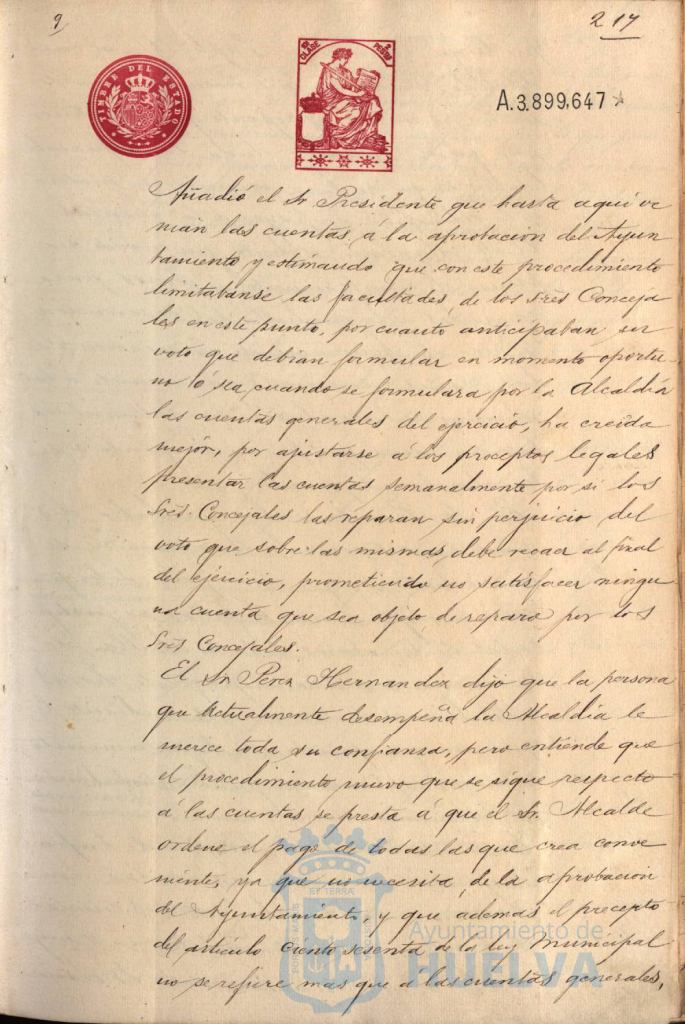 9
217
TIMBRE DEL ESTADO
10ª CLASE
2 PESETAS
A.3.899,647
Añadió el Sr Presidente que hasta aquí ve
nian las cuentas á la aprobacion del Ayun
tamiento y estimando que con este procedimiento
limitabanse las facultades de los Sres Conceja
les en este punto, por cuanto anticipaban su
voto que debian formular en momento oportu
no ó sea cuando se formulara por la Alcaldía
las cuentas generales del ejercicio, ha creido
mejor, por ajustarse á los preceptos legales
presentar las cuentas semanalmente por si los
Sres. Concejales las reparan sin perjuicio del
voto que sobre las mismas debe recaer al final
del ejercicio, prometiendo no satisfacer ningu
na cuenta que sea objeto de reparo por los
Sres Concejales.
El Sr Perez Hernandez dijo que la persona
que actualmente desempeña la Alcaldía le
merece toda su confianza, pero entiende que
el procedimiento nuevo que se sigue respecto
á las cuentas se presta á que el Sr. Alcalde
ordene el pago de todas las que crea conve
niente, ya que no necesita de la aprobacion
del Ayuntamiento, y que además el precepto
del artículo ciento sesenta de la ley Municipal
no se refiere mas que a las cuentas generales,
Ayuntamiento de
HUELVA